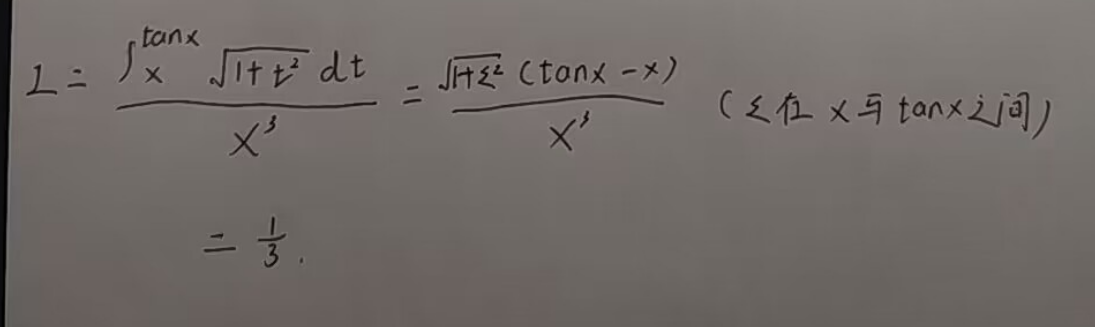 I = ∫_x^{tanx} √(1+t²) dt / x³ = √(1+ξ²) (tanx - x) / x³ (ξ在 x与 tanx之间)
= 1/3.